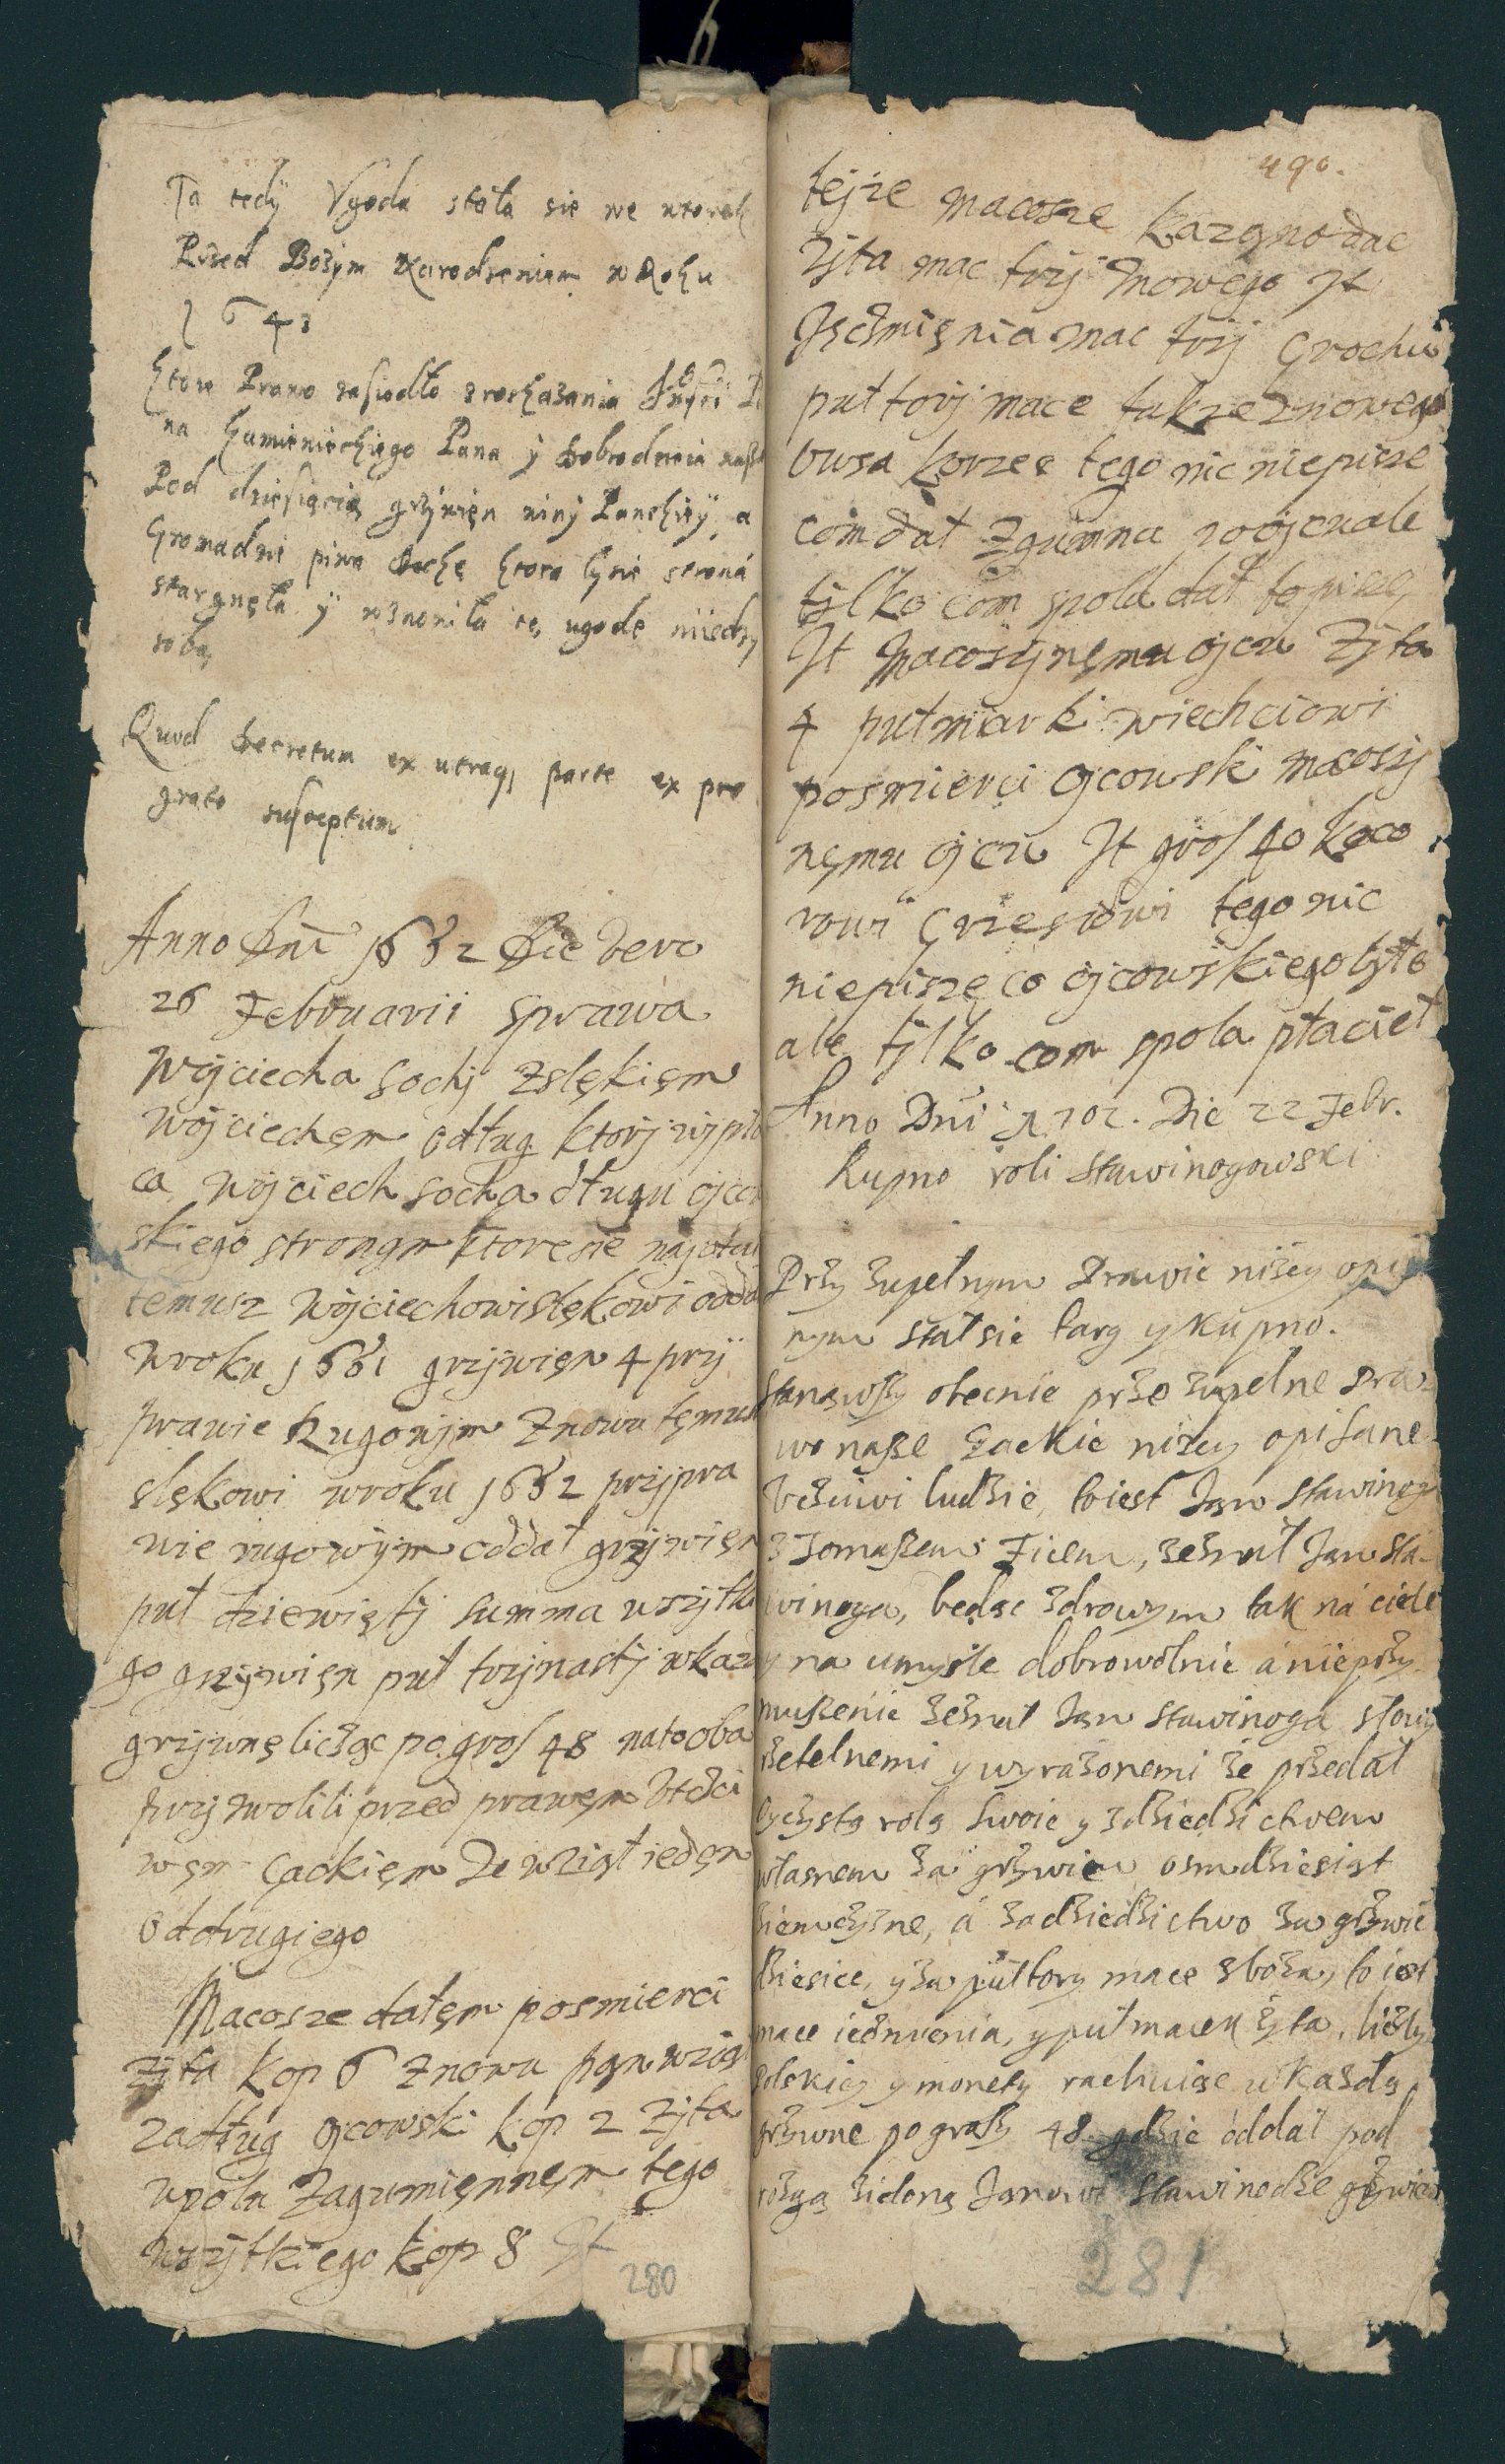 Ta tedÿ Vgoda stała sie we wtorek
Przed Bożÿm Narodzeniem w Roku
1643
Ktore Prawo zasiadło z roskazania
na Kamienieckiego Pana ÿ dobrodzieia
Pod dziesięcią grzÿwien winÿ Panskieÿ, a
Gromadzie piwa beckę ktora bÿ sie strona
stargnęła ÿ wznowiła tę ugode miedzÿ
sobą
Quod decretum ex utraq, parte ex pro
grato susceptum
Anno Dni 1662 Die Vero
26 Februarii sprawa
Wojciecha sochÿ zslękięm
Wojciechęm odług ktorÿ wÿpła
ca Wojciech socha długu ojcow
skiego strongm ktore sie najołui
temusz wojciechowi slękowi oddał
wroku 1661 grzÿwięn 4 przÿ
prawie Rugowÿm znowu tęmusz
slękowi wroku 1662 przÿpra
wie rugowÿm oddał grzÿwięn
puł dziewiętÿ summa wszÿtkie
go grzÿwięn puł trzÿnastÿ wkażdą
grzÿwnę licząc po gros 48 nato oba
przÿzwolili przed prawęm
węm Gackięm że wziął iedęn
oddrugiego
Macosze dałęm posmierci
żÿta kop 6 znowu pan wziął
zadług ojcowski kop 2 żÿta
upola Zagumięnnęm tego
wszÿtkiego kop 8 It
280
490.
tejże macosze kazano dac
żÿta mac trzÿ znowego It
Jęczmięnia mac trzÿ Grochu
pułtorÿ mace także znowego
owsa korzec tego nic niepisze
com dał zgumna
tÿlko com spola dał to piszę
It Macoszÿnęmu ojcu Żÿta
4 pułmiarki wiechciowi
posmierci ojcowsk macoszÿ
nęmu ojcu It gros 40 kaco
rowi Grzesiowi tego nic
niepiszę co ojcowskiego bÿło
ale tÿlko com spola płacieł
Anno Dni 1702. Die 22 Febr.
Kupno roli Sławinogowski
Przy zupełnym Prawie niżey opisa
nym stał sie targ y kupno.
Stanąwszy obecnie prze zupełne pra-
wo nasze Gackie niżey opisane
Vczciwi ludzie, to iest Jan Sławinoga
z Tomaszem Ficem, zeznał Jan Sła-
winoga, będąc zdrowym tak na ciele
y na umysle dobrowolnie a nieprzy
muszenie zeznał Jan Sławinoga słowy
rzetelnemi y wyrażonemi że przedał
oyczystą rolą swoie y z dziedzictwem
własnem za grzywien osmdziesiąt
ziemczyzne, a za dziedzictwo za grzywie
dziesiec, y za pułtory mace zboża, to iest
mace ieczmienia, y puł macek żyta, liczby
Polskiey y monety rachuiąc w każdą
grzywne po groszy 48. gdzie oddał pod
rózgą zieloną Janowi Sławinodze grzywien
281